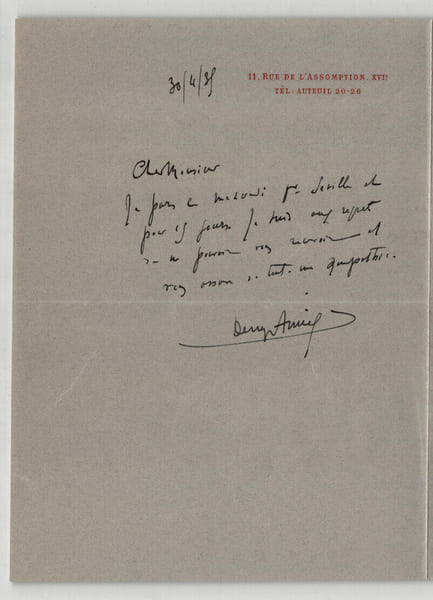 30/4/35
11, RUE DE L'ASSOMPTION. XVIᵉ
TÉL: AUTEUIL 20-26
Cher Monsieur
Je pars ce mercredi pr Séville et
pour 15 jours. Je suis aux regret
de ne pouvoir vous recevoir et
vous assure de toute ma sympathie.
Denys Amiel